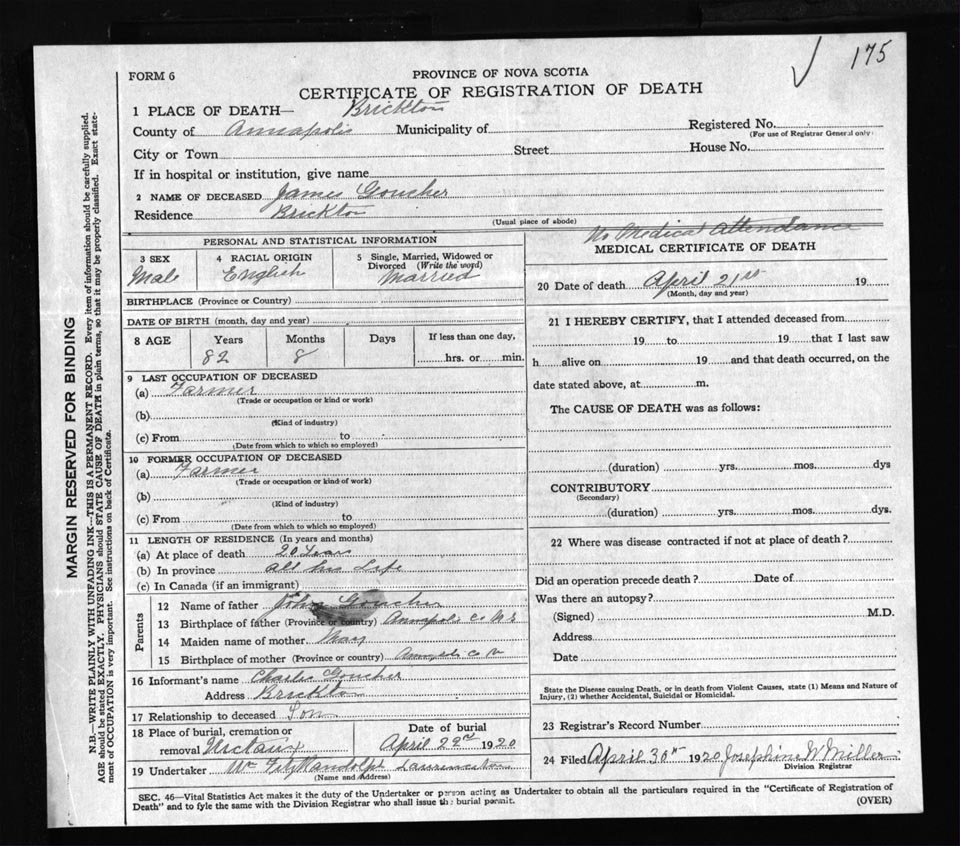 175
FORM 6
PROVINCE OF NOVA SCOTIA
CERTIFICATE OF REGISTRATION OF DEATH
1 PLACE OF DEATH— Brickton
County of Annapolis Municipality of Registered No.
(For use of Registrar General only)
City or Town Street House No.
If in hospital or institution, give name
2 NAME OF DECEASED James Goucher
Residence Brickton
(Usual place of abode)
No Medical Attendance
PERSONAL AND STATISTICAL INFORMATION
3 SEX 4 RACIAL ORIGIN 5 Single, Married, Widowed or Divorced (Write the word)
Male English Married
BIRTHPLACE (Province or Country)
DATE OF BIRTH (month, day and year)
8 AGE Years Months Days If less than one day,
82 8 hrs. or min.
9 LAST OCCUPATION OF DECEASED
(a) Farmer
(Trade or occupation or kind or work)
(b)
(Kind of industry)
(c) From to
(Date from which to which so employed)
10 FORMER OCCUPATION OF DECEASED
(a) Farmer
(Trade or occupation or kind of work)
(b)
(Kind of industry)
(c) From to
(Date from which to which so employed)
11 LENGTH OF RESIDENCE (In years and months)
(a) At place of death 20 Years
(b) In province all his Life
(c) In Canada (if an immigrant)
Parents
12 Name of father John Goucher
13 Birthplace of father (Province or country) Annapolis Co N S
14 Maiden name of mother Mary
15 Birthplace of mother (Province or country) Co N
16 Informant's name Charlie Goucher
Address Brickton
17 Relationship to deceased Son
18 Place of burial, cremation or removal Nictaux
Date of burial
April 22nd 1920
19 Undertaker Wm FitzRandolph Lawrencetown
(Name and Address)
MEDICAL CERTIFICATE OF DEATH
20 Date of death April 21st 19
(Month, day and year)
21 I HEREBY CERTIFY, that I attended deceased from
19 to 19 that I last saw
h alive on 19 and that death occurred, on the
date stated above, at m.
The CAUSE OF DEATH was as follows:
(duration) yrs. mos. dys
CONTRIBUTORY
(Secondary)
(duration) yrs. mos. dys.
22 Where was disease contracted if not at place of death?
Did an operation precede death? Date of
Was there an autopsy?
(Signed) M.D.
Address
Date
State the Disease causing Death, or in death from Violent Causes, state (1) Means and Nature of
Injury, (2) whether Accidental, Suicidal or Homicidal.
23 Registrar's Record Number
24 Filed April 30th 1920 Josephine W Miller
Division Registrar
SEC. 46—Vital Statistics Act makes it the duty of the Undertaker or person acting as Undertaker to obtain all the particulars required in the "Certificate of Registration of
Death" and to fyle the same with the Division Registrar who shall issue the burial permit. (OVER)
MARGIN RESERVED FOR BINDING
N.B.—WRITE PLAINLY WITH UNFADING INK—THIS IS A PERMANENT RECORD. Every item of information should be carefully supplied.
AGE should be stated EXACTLY. PHYSICIANS should STATE CAUSE OF DEATH in plain terms, so that it may be properly classified. Exact state-
ment of OCCUPATION is very important. See instructions on back of Certificate.